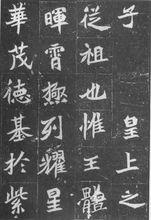 子　皇上之
從祖也惟王體
暉霄極列耀星
華茂德基於紫